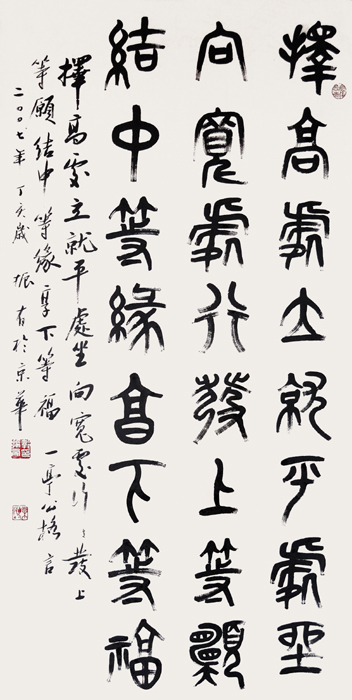 擇高處立就平處坐
向寬處行發上等願
結中等緣享下等福
擇高處立就平處坐向寬處行發上
等願結中等緣享下等福 公格言
二〇〇七年丁亥歲振有於京華